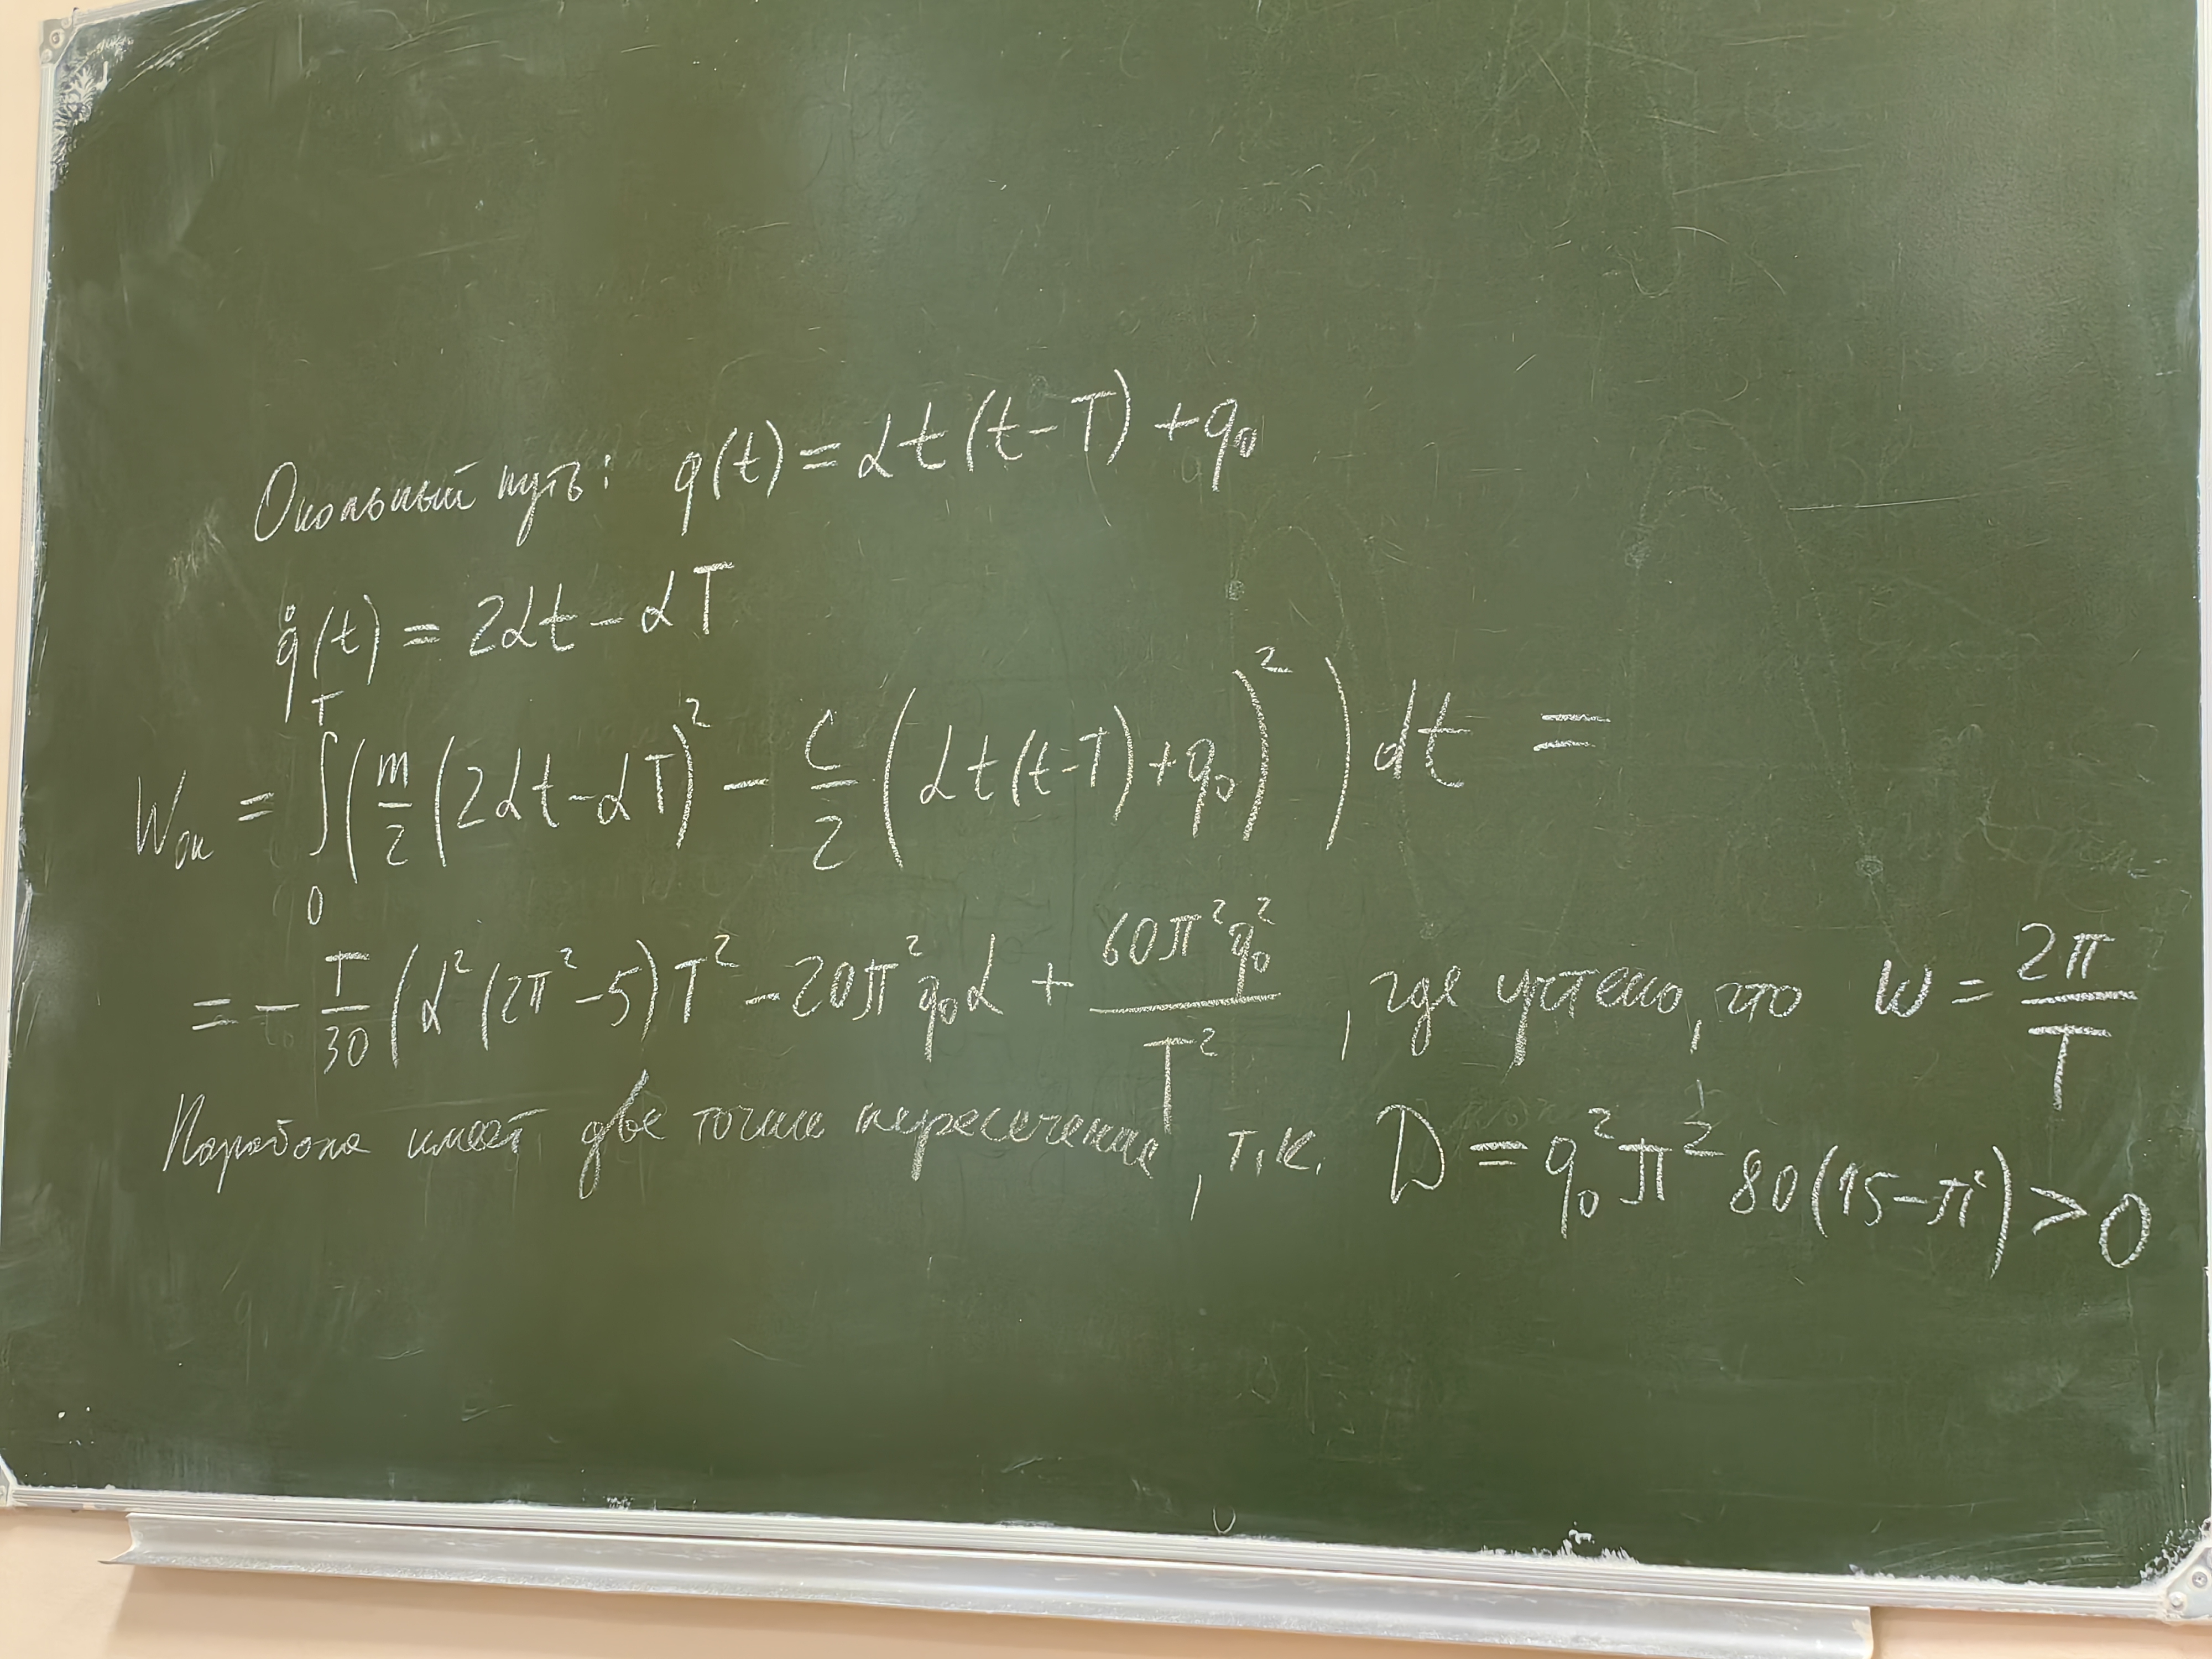 Окольный путь: q(t) = αt(t-T) + q₀
q̇(t) = 2αt - αT
Wок = ∫₀ᵀ (m/2 (2αt - αT)² - c/2 (αt(t-T) + q₀)²) dt =
= - T/30 (α²(2π²-5)T² - 20π²q₀α + 60π²q₀²/T² , где учтено, что ω = 2π/T
Парабола имеет две точки пересечения, т.к. D = q₀²π² 80(15-π²) > 0